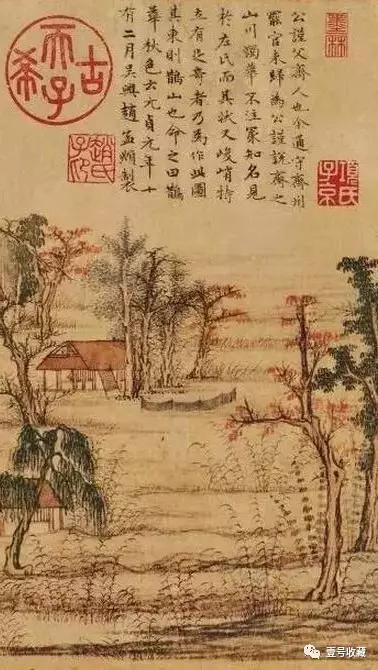 墨林
項氏子京
公謹父齊人也余通守齊州
罷官來歸為公謹說齊之
山川獨華不注冣知名見
於左氏而其狀又峻峭特
立有足奇者乃為作此圖
其東則鵲山也命之曰鵲
華秋色云元貞元年十
有二月吳興趙孟頫製
古希天子
趙氏子昂
壹号收藏